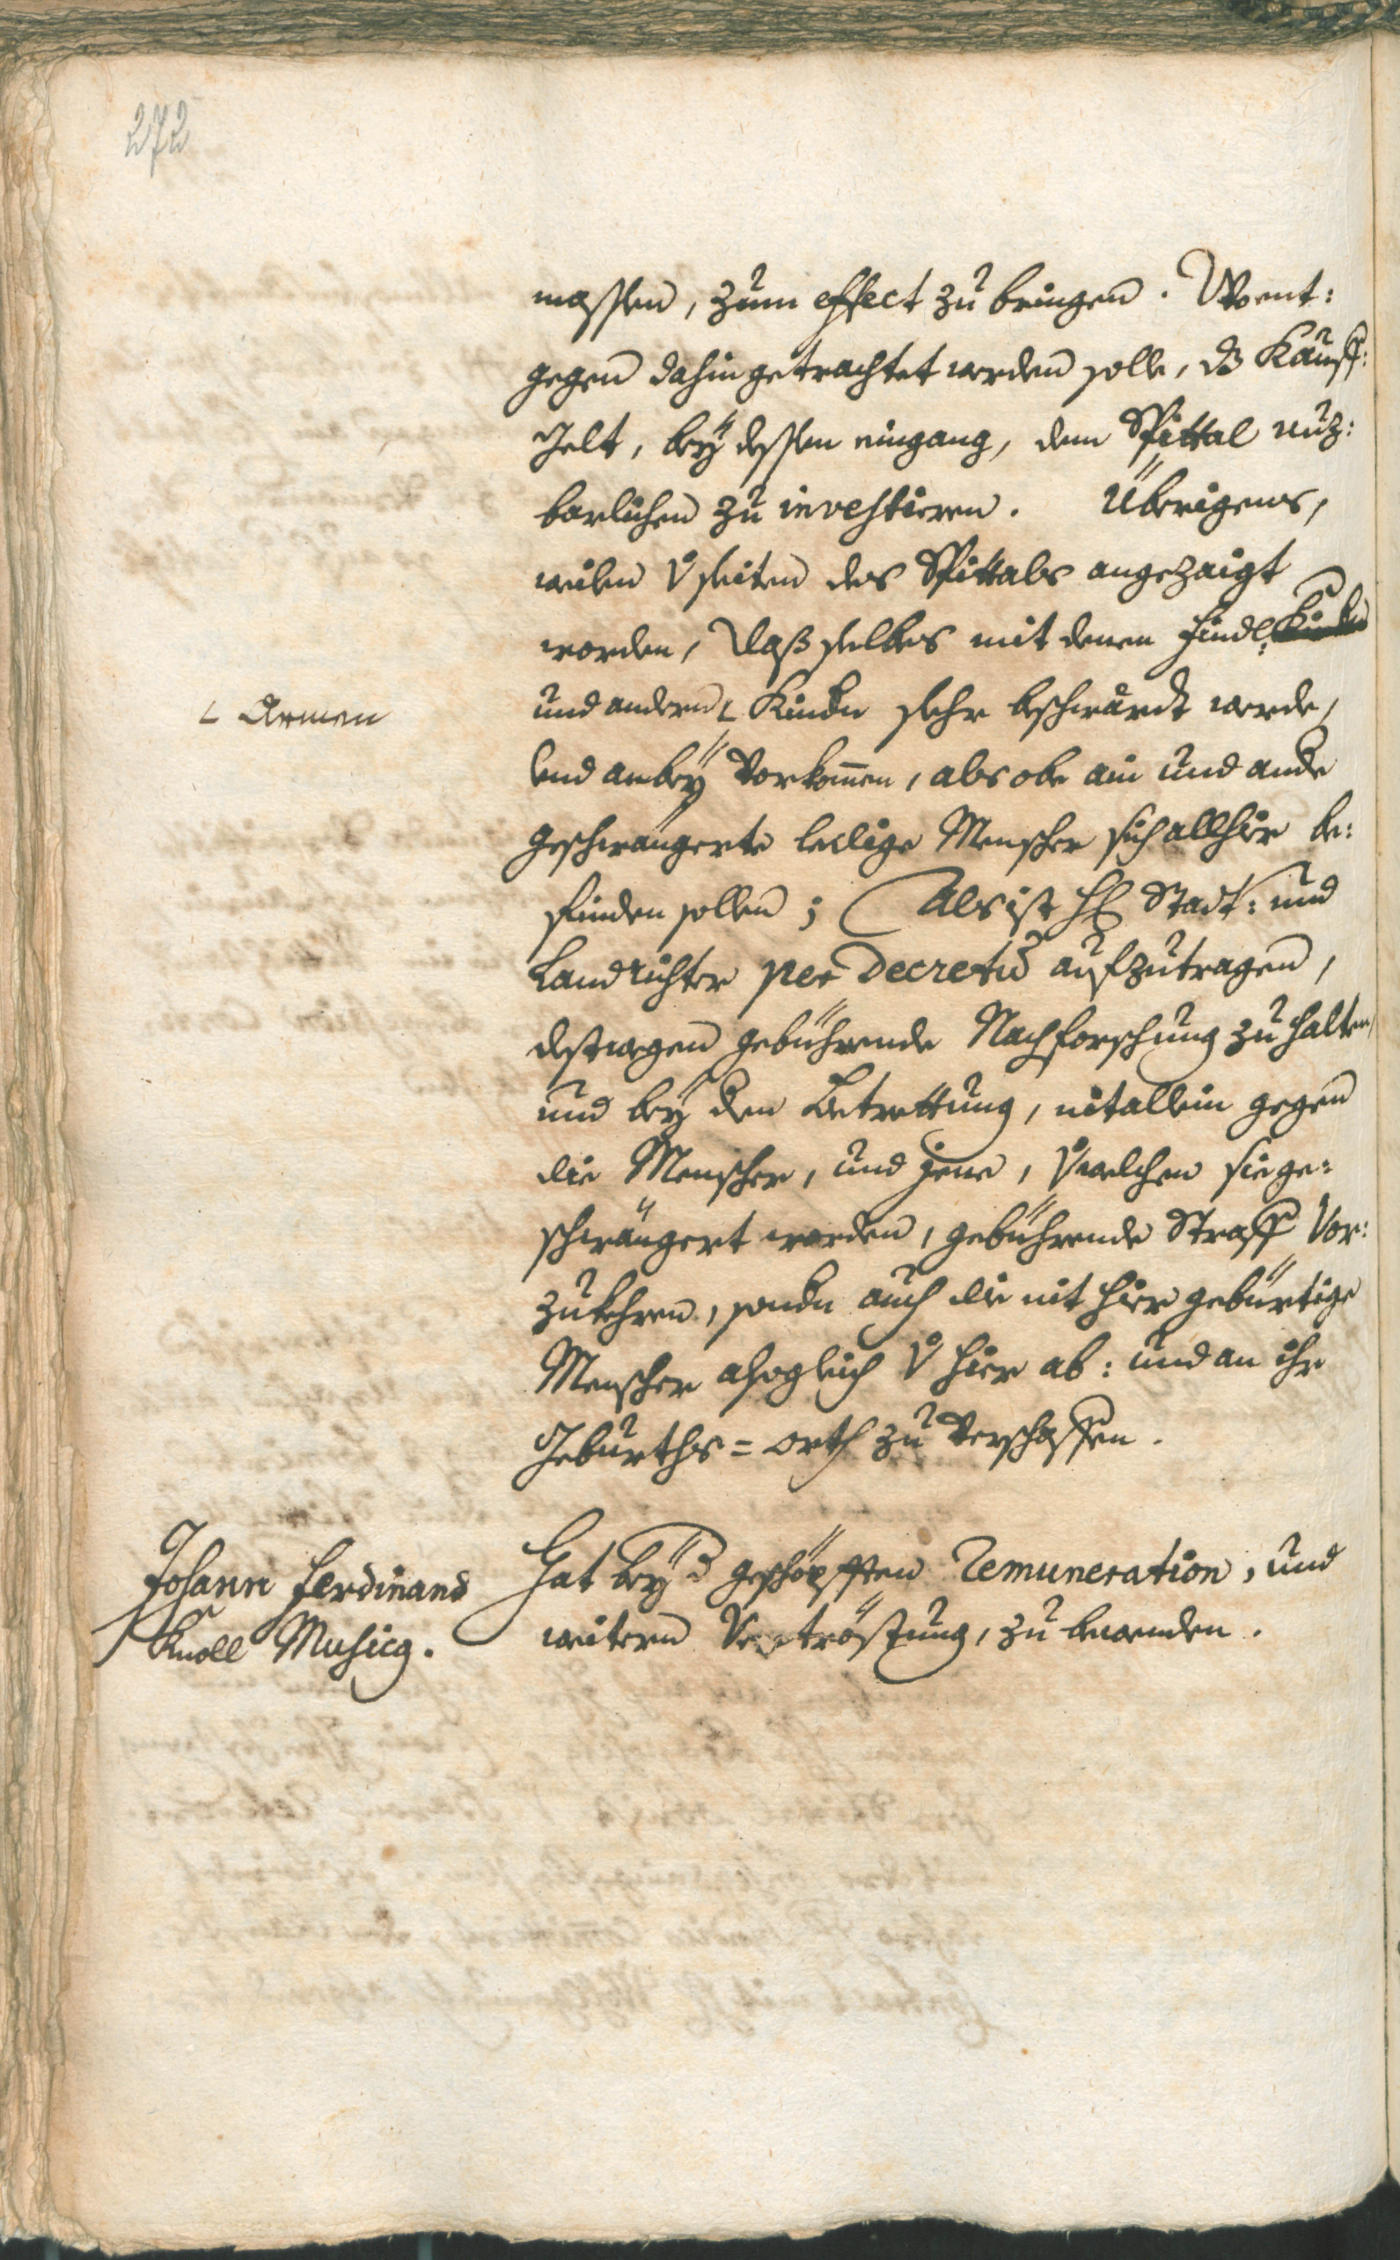 272
massen, zum effect zu bringen. Woent:
gegen dahin getrachtet werden solle, dz Kauff:
Gelt, beÿ dessen eingang, dem Spittal nuz:
barlichen zu investieren. Überigens,
weilen v̊ seiten des Spittals angezaigt
worden, daß selbes mit denen Findl: Kindern
und andern ∟ Kindn sehr beschwärdt werde,
∟ Armen
vnd anbeÿ vorkom̄en, als obe ain und andre
geschwängerte ledige Menscher sich allhier be:
finden sollen; Als ist H: Stadt: und
Landrichter per Decretū aufzutragen,
destwegen gebührende Nachforschung zu halten,
und beÿ den Betrettung, nit allein gegen
die Menscher, und jene, v̊ welchen sie ge:
schwängert worden, gebührende Straff vor:
zukehren, sondn auch die nit hier gebürtige
Menscher alsogleich v̊ hier ab: und an ihr
Geburths=orth zu verschaffen.
Johann Ferdinand
Knoll Musicq.
Hat beÿ d geschöpfften Remuneration, und
weitern Vertröstung, zu bewenden.